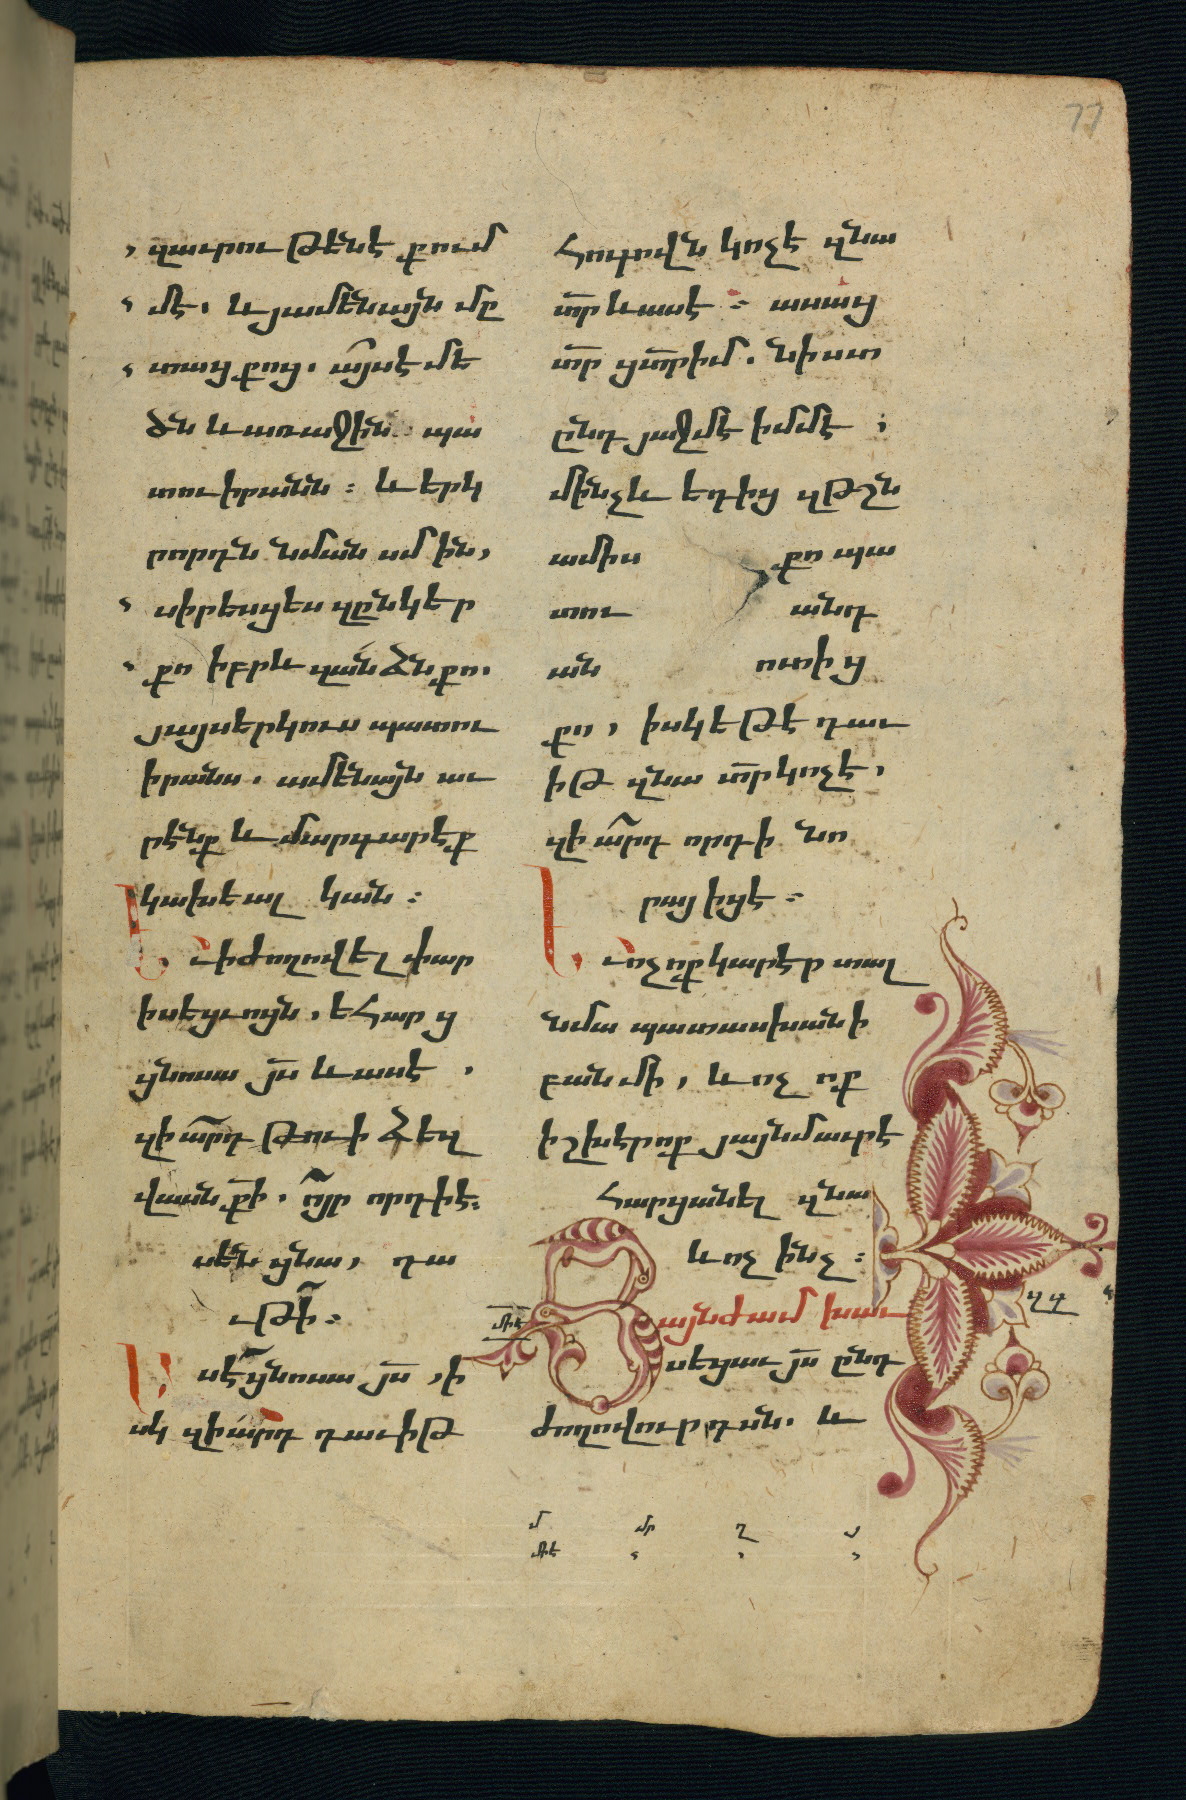 77
զաւրութենէ քում
մէ. և յամենայն մը
տաց քոց. այս է մե
ծն և առաջին պա
տուիրանն։ և երկ
րորդն նման սմին,
սիրեսցես զընկեր
քո իբրև զանձն քո.
յայս երկուս պատու
իրանս. ամենայն աւ
րէնք և մարգարէք
կախեալ կան։
Եւ ի ժողովել փար
իսեցւոյն, եհարց
ցնոսա յս և ասէ.
զիարդ թուի ձեզ
վասն քի. ոյր որդի է։
ասեն ցնա, դա
ւթի։
Ասէ ցնոսա յս, ի
սկ զիարդ դաւիթ
հոգովն կոչէ զնա
տր և ասէ։ ասաց
տր ցտր իմ. նիստ
ընդ յաջմէ իմմէ,
մինչև եդից զթշն
ամիս քո պա
տու անդ
ան ոտից
քո, իսկ եթէ դաւ
իթ զնա տր կոչէ,
զիարդ որդի նո
րայ իցէ։
Եւ ոչ ոք կարէր տալ
նմա պատասխանի
բան մի, և ոչ ոք
իշխէր ոք յայնմաւրէ
հարցանել զնա
և ոչ ինչ։
Յայնժամ խաւ
սեցաւ յս ընդ
ժողովուրդան. և